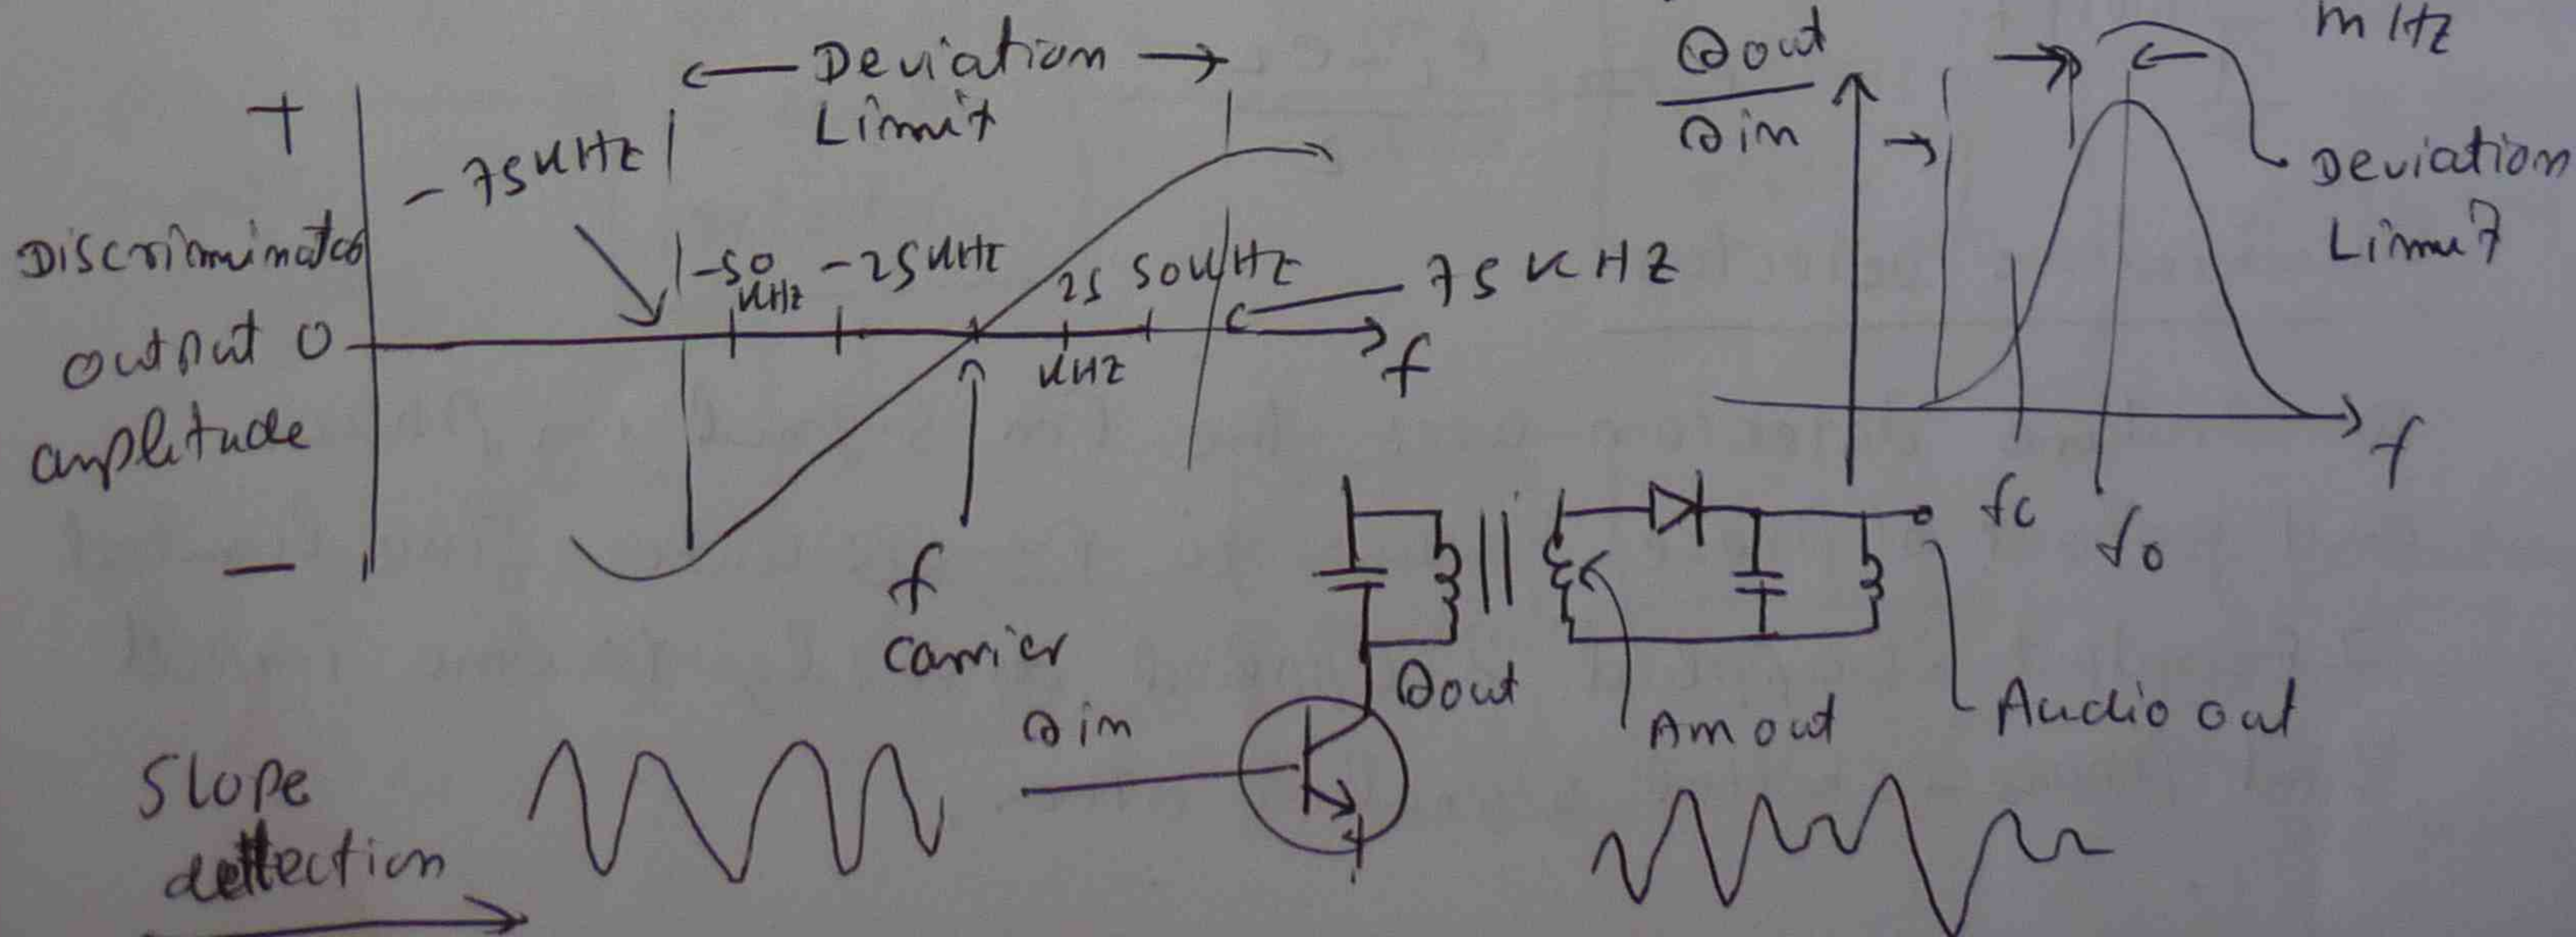 ← Deviation →
Limit
+
- 75 KHZ
Discriminator
output 0
amplitude
-
-50
KHz
-25 KHZ
25
KHZ
50 KHZ
75 KHZ
f
f
carrier
eout
ein
MHz
Deviation
Limit
f
fc
fo
Slope
dettection
ein
eout
Am out
Audio out